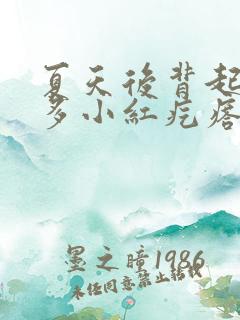 夏天後背起
多小紅疙瘩
墨之瞳1986
未任同意禁止轉載